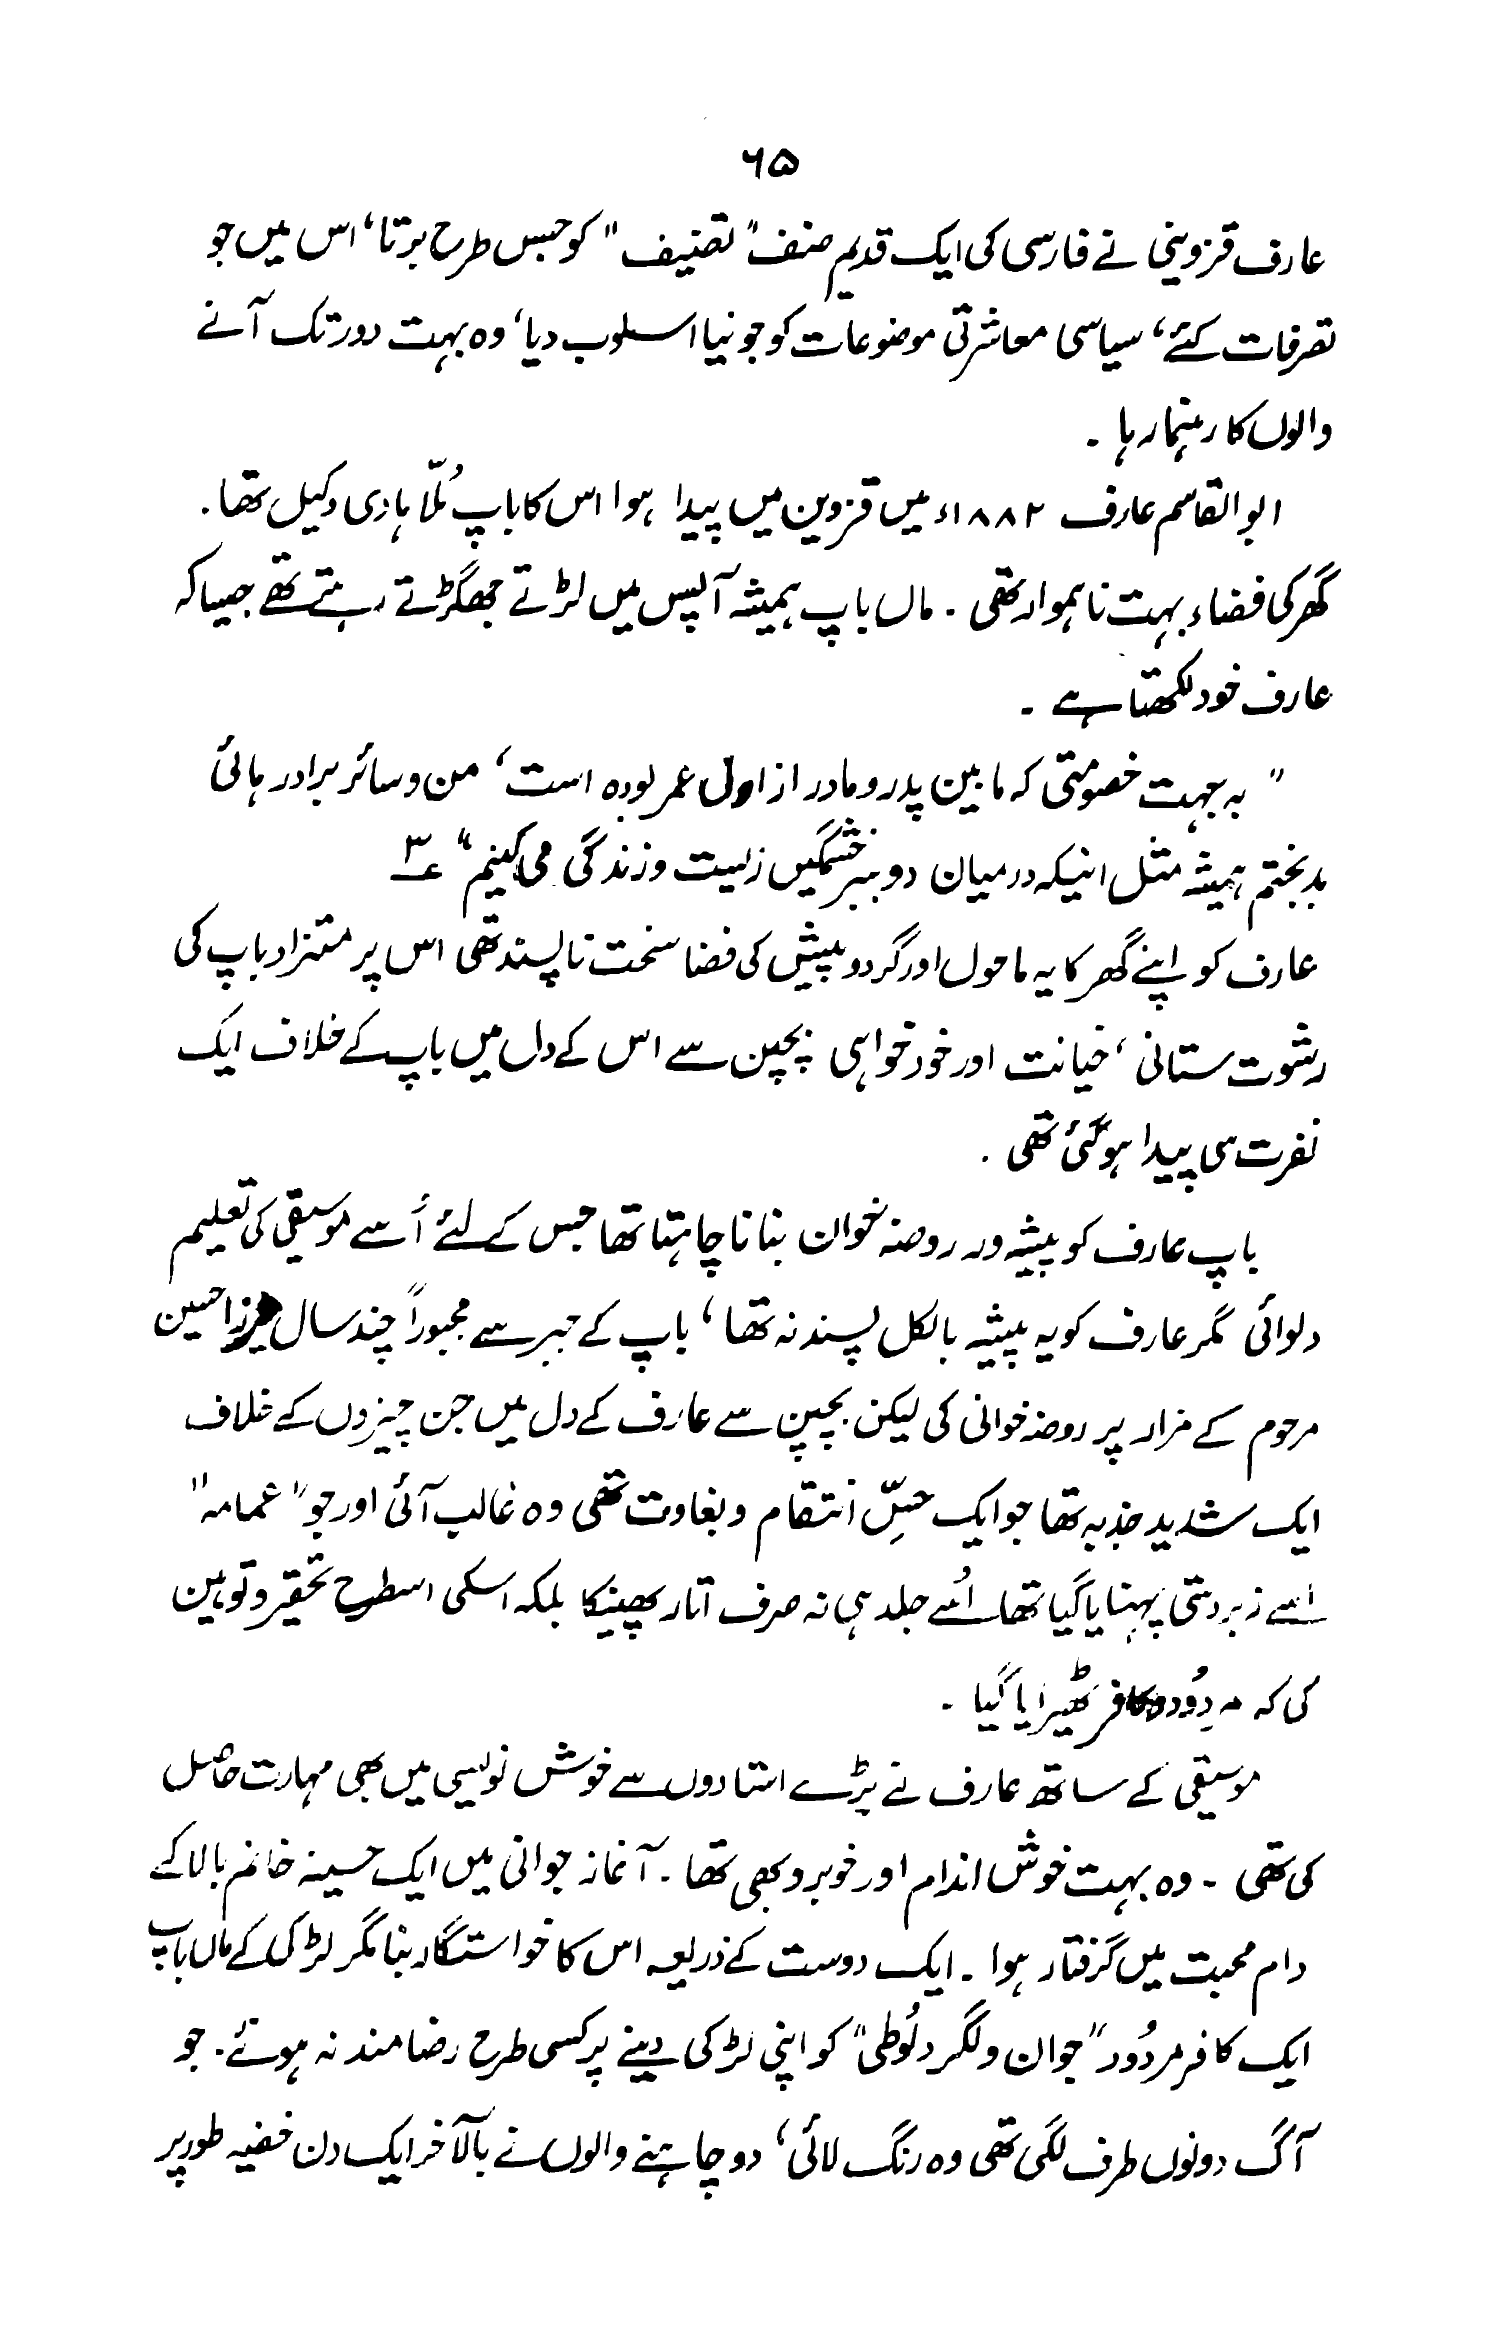 ۶۵
عارف قزوینی نے فارسی کی ایک قدیم صنف "تصنیف" کو جس طرح برتا، اس میں جو
تصرفات کئے، سیاسی معاشرتی موضوعات کو جو نیا اسلوب دیا، وہ بہت دور تک آنے
والوں کا رہنما رہا ۔
ابوالقاسم عارف ۱۸۸۲ء میں قزوین میں پیدا ہوا اس کا باپ مُلّا ہادی وکیل تھا ۔
گھر کی فضاء بہت ناہموار تھی ۔ ماں باپ ہمیشہ آپس میں لڑتے جھگڑتے رہتے تھے جیسا کہ
عارف خود لکھتا ہے ۔
" بہ جہت خصومتی کہ مابین پدر و مادر از اول عمر بودہ است، من و سائر برادر ہائی
بدبختم ہمیشہ مثل اینکہ درمیان دو ببر خشمگیں زیست و زندگی می کینم" ؏۳
عارف کو اپنے گھر کا یہ ماحول اور گرد و پیش کی فضا سخت ناپسند تھی اس پر متنراد باپ کی
رشوت ستانی، خیانت اور خود خواہی بچپن سے اس کے دل میں باپ کے خلاف ایک
نفرت سی پیدا ہو گئی تھی ۔
باپ عارف کو پیشہ ور روضہ خوان بنانا چاہتا تھا جس کے لئے اُسے موسیقی کی تعلیم
دلوائی مگر عارف کو یہ پیشہ بالکل پسند نہ تھا، باپ کے جبر سے مجبوراً چند سال میرزا حسین
مرحوم کے مزار پر روضہ خوانی کی لیکن بچپن سے عارف کے دل میں جن چیزوں کے خلاف
ایک شدید جذبہ تھا جو ایک حسِّ انتقام و بغاوت تھی وہ غالب آئی اور جو "عمامہ"
اسے زبردستی پہنایا گیا تھا اُسے جلد ہی نہ صرف اتار پھینکا بلکہ اسکی اسطرح تحقیر و توہین
کی کہ کافر ٹھیرایا گیا ۔
موسیقی کے ساتھ عارف نے بڑے استادوں سے خوش نویسی میں بھی مہارت حاصل
کی تھی ۔ وہ بہت خوش اندام اور خوبرو بھی تھا ۔ آغاز جوانی میں ایک حسینہ خانم بالا کے
دام محبت میں گرفتار ہوا ۔ ایک دوست کے ذریعہ اس کا خواستگار بنا مگر لڑکی کے ماں باپ
ایک کافر مردُود "جوان ولگرد لُوطی" کو اپنی لڑکی دینے پر کسی طرح رضا مند نہ ہوئے ۔ جو
آگ دونوں طرف لگی تھی وہ رنگ لائی، دو چاہنے والوں نے بالآخر ایک دن خفیہ طور پر